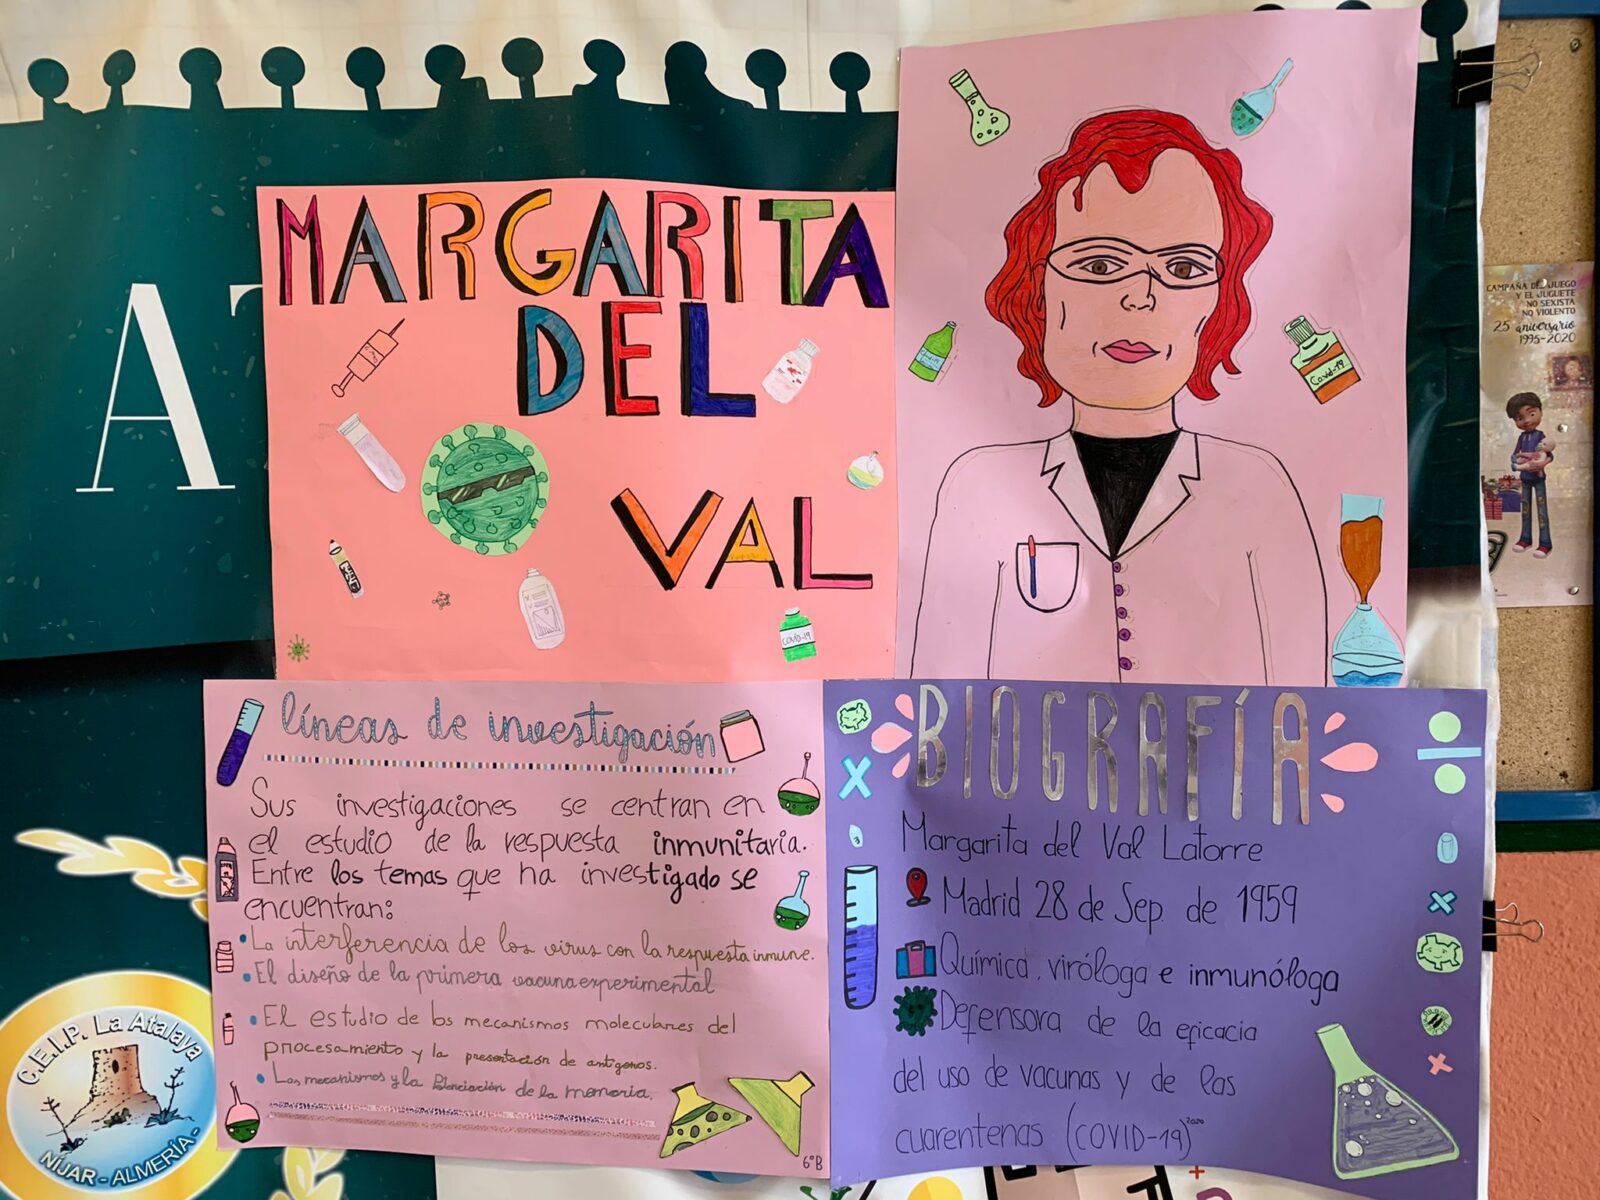 A
MARGARITA
DEL
VAL
COVID-19
Covid-19
CAMPAÑA DEL JUEGO
Y EL JUGUETE
NO SEXISTA
NO VIOLENTO
25 aniversario
1995-2020
líneas de investigación
Sus investigaciones se centran en
el estudio de la respuesta inmunitaria.
Entre los temas que ha investigado se
encuentran:
• La interferencia de los virus con la respuesta inmune.
• El diseño de la primera vacuna experimental
• El estudio de los mecanismos moleculares del
procesamiento y la presentación de antígenos.
• Los mecanismos y la de la memoria.
6ºB
BIOGRAFÍA
Margarita del Val Latorre
Madrid 28 de Sep. de 1959
Química, viróloga e inmunóloga
Defensora de la eficacia
del uso de vacunas y de las
cuarentenas (COVID-19) 2020
C.E.I.P. La Atalaya
NÍJAR - ALMERÍA -